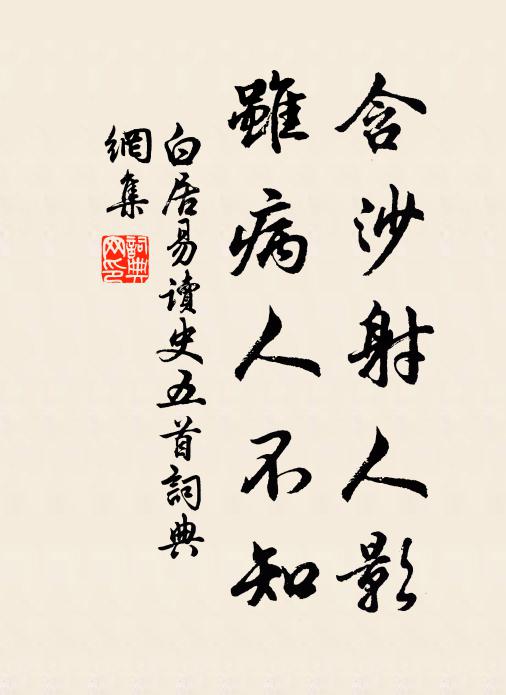 含沙射人影
雖病人不知
白居易讀史五首詞典
網集
詞典网印